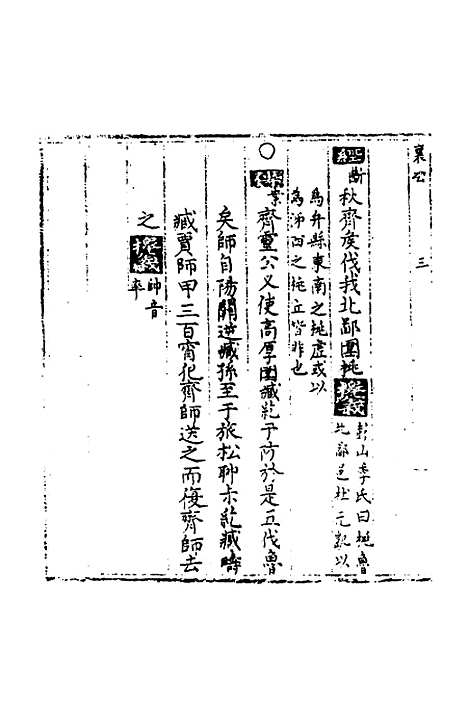 襄公 三
經 斷 秋齊侯伐我北鄙圍桃 攷義 彭山季氏曰桃魯
北鄙邑杜元凱以
為弁縣東南之桃虛或以
為沛國之桃丘皆非也
○ 案 齊靈公又使高厚圍臧紇于防於是五伐魯
矣師自陽關逆臧孫至于旅松聊叔紇臧疇
臧賈師甲三百宵犯齊師送之而復齊師去
之 帥音
率